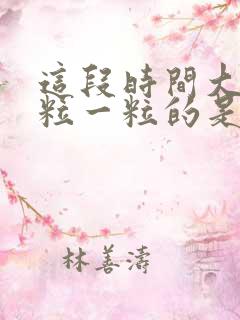 這段時間大
粒一粒的是
林善濤